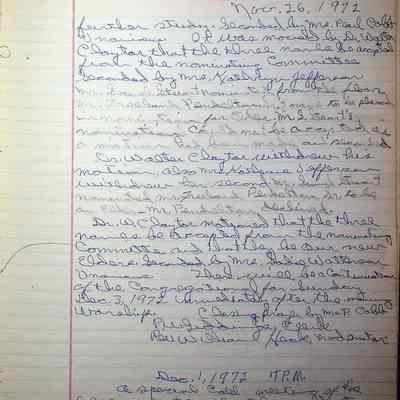 Nov. 26, 1972
further study. Seconded by Mrs. Paul Cobb
Unanimous. It was moved by Dr. Walter
Clayton that the three names be accepted
from the nominating Committee
Seconded by Mrs. Kathryn Jefferson
Mr. Stewart nominated from the floor
Mr. Freeland Pendleton name to be placed
in nomination for Elder. Mr. Stewart's
nomination could not be accepted as
a motion had been made and seconded
Dr. Walter Clayton withdrew his
motion, also Mrs. Kathryn Jefferson
withdrew her second. Mr. Stewart
nominated Mr. Freeland Pendleton to be
an Elder. Mr. Pendleton declined.
Dr. W. Clayton motioned that the three
names be accepted from the nominating
Committee and that they be our new
Elders. Seconded by Mrs. Sadie Watterson
Unanimous. There will be a Continuation
of the Congregational for Sunday
Dec. 3, 1972 immediately after the morning
Worship. Closing Prayer by Mr. P. Cobb
Clerk
Rev. William Hawk, Moderator
Dec. 1, 1972 7 P.M.
A special Call meeting of the